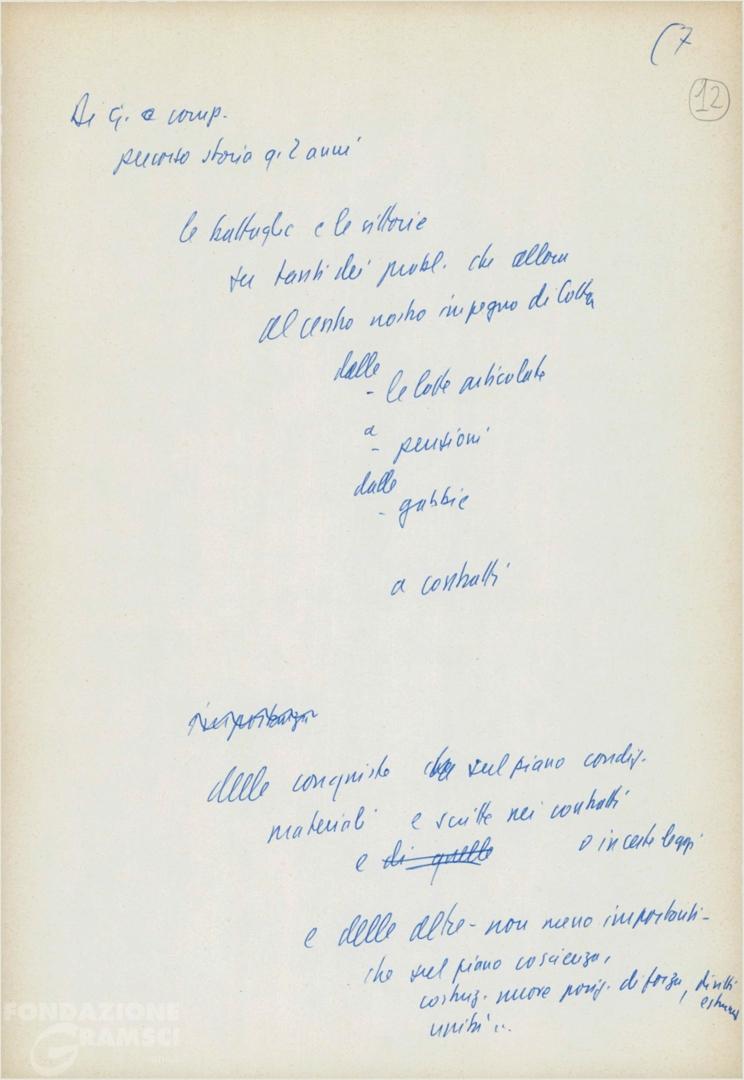 (7
12
Di q. e comp.
percorso storia q. 2 anni
le battaglie e le vittorie
su tanti dei probl. che allora
al centro nostro impegno di lotta
dalle
- le lotte articolate
a
- pensioni
dalle
- gabbie
a contratti
importanza
delle conquiste sul piano condiz.
materiali e scritte nei contratti
e di quelle o in certe leggi
e delle altre - non meno importanti -
che sul piano coscienza,
costruz. nuove posiz. di forza, diritti
unità ..
FONDAZIONE
GRAMSCI